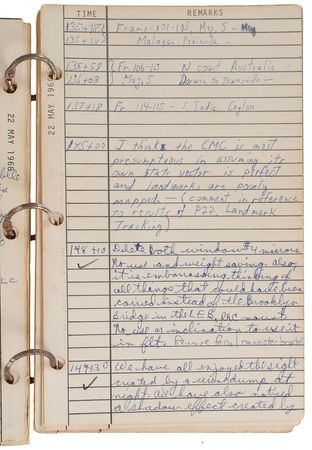 TIME REMARKS
135+48 Fram: 101-105, Mag, S - Mag
135+50 Malagan Peninsula -
135+58 Fr 106-113 N coast Australia -
136+03 Mag, S Darwin to Townsville -
137+18 Fr 114-115 - S. India, Ceylon
145+00 I think the CMC is most
presumptuous in assuming its
own state vector is perfect
and landmarks are poorly
mapped - (comment in reference
to results of P22, Landmark
Tracking)
148+10 Delete both window #4 mirrors
No use and weight saving. Also
it is embarassing thinking of
all things that could have been
carried instead of the Brooklyn
Bridge in the LEB, mount.
No use or inclination to use it
in flt.
149+30 We have all enjoyed the sight
created by a waterdump at
night. We have also noticed
a shadow effect created by
22 MAY 1968
22 MAY 196